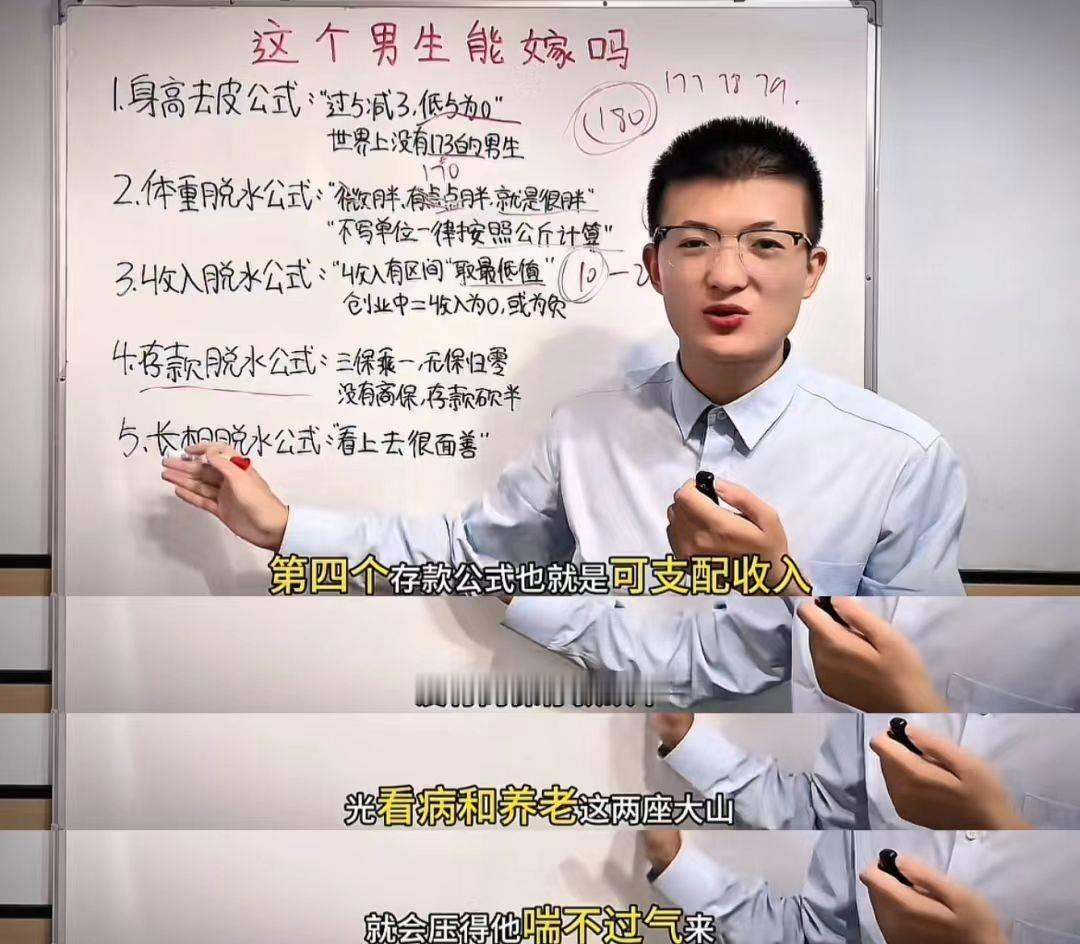 这个男生能嫁吗
177 78 79.
180
1.身高去皮公式:"过5减3,低5为0"
世界上没有173的男生
170
2.体重脱水公式:"微胖,有点点胖,就是很胖"
"不写单位一律按照公斤计算"
3.收入脱水公式:"收入有区间"取最低值" 10-2
创业中=收入为0,或为负
4.存款脱水公式:三保乘一,无保归零
没有商保,存款砍半
5.长相脱水公式:"看上去很面善"
第四个存款公式也就是可支配收入
光看病和养老这两座大山
就会压得他喘不过气来